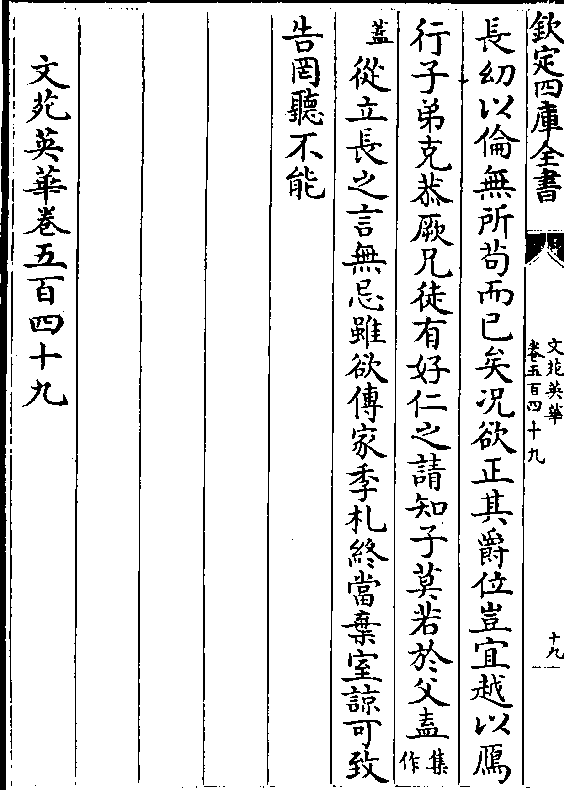 欽定四庫全書
文苑英華
卷五百四十九
十九
長幼以倫無所苟而已矣况欲正其爵位豈宜越以鴈
行子弟克恭厥兄徒有好仁之請知子莫若於父盍集作
蓋從立長之言無忌雖欲傳家季札終當棄室諒可致
告罔聽不能
文苑英華卷五百四十九